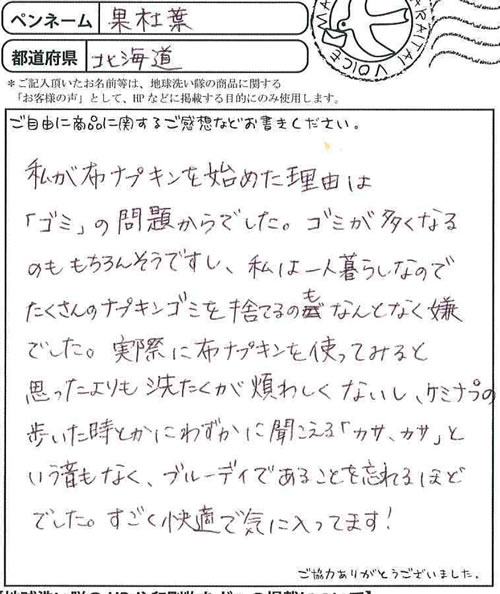 ペンネーム 果杜葉
都道府県 北海道
＊ご記入頂いたお名前等は、地球洗い隊の商品に関する
「お客様の声」として、HPなどに掲載する目的にのみ使用します。
ご自由に商品に関するご感想などお書きください。
私が布ナプキンを始めた理由は
「ゴミ」の問題からでした。ゴミが多くなる
のももちろんそうですし、私は一人暮らしなので
たくさんのナプキンゴミを捨てるのもなんとなく嫌
でした。実際に布ナプキンを使ってみると
思ったよりも洗たくが煩わしくないし、ケミナプの
歩いた時とかにわずかに聞こえる「カサ、カサ」と
いう音もなく、ブルーディであることを忘れるほど
でした。すごく快適で気に入ってます!
ご協力ありがとうございました。